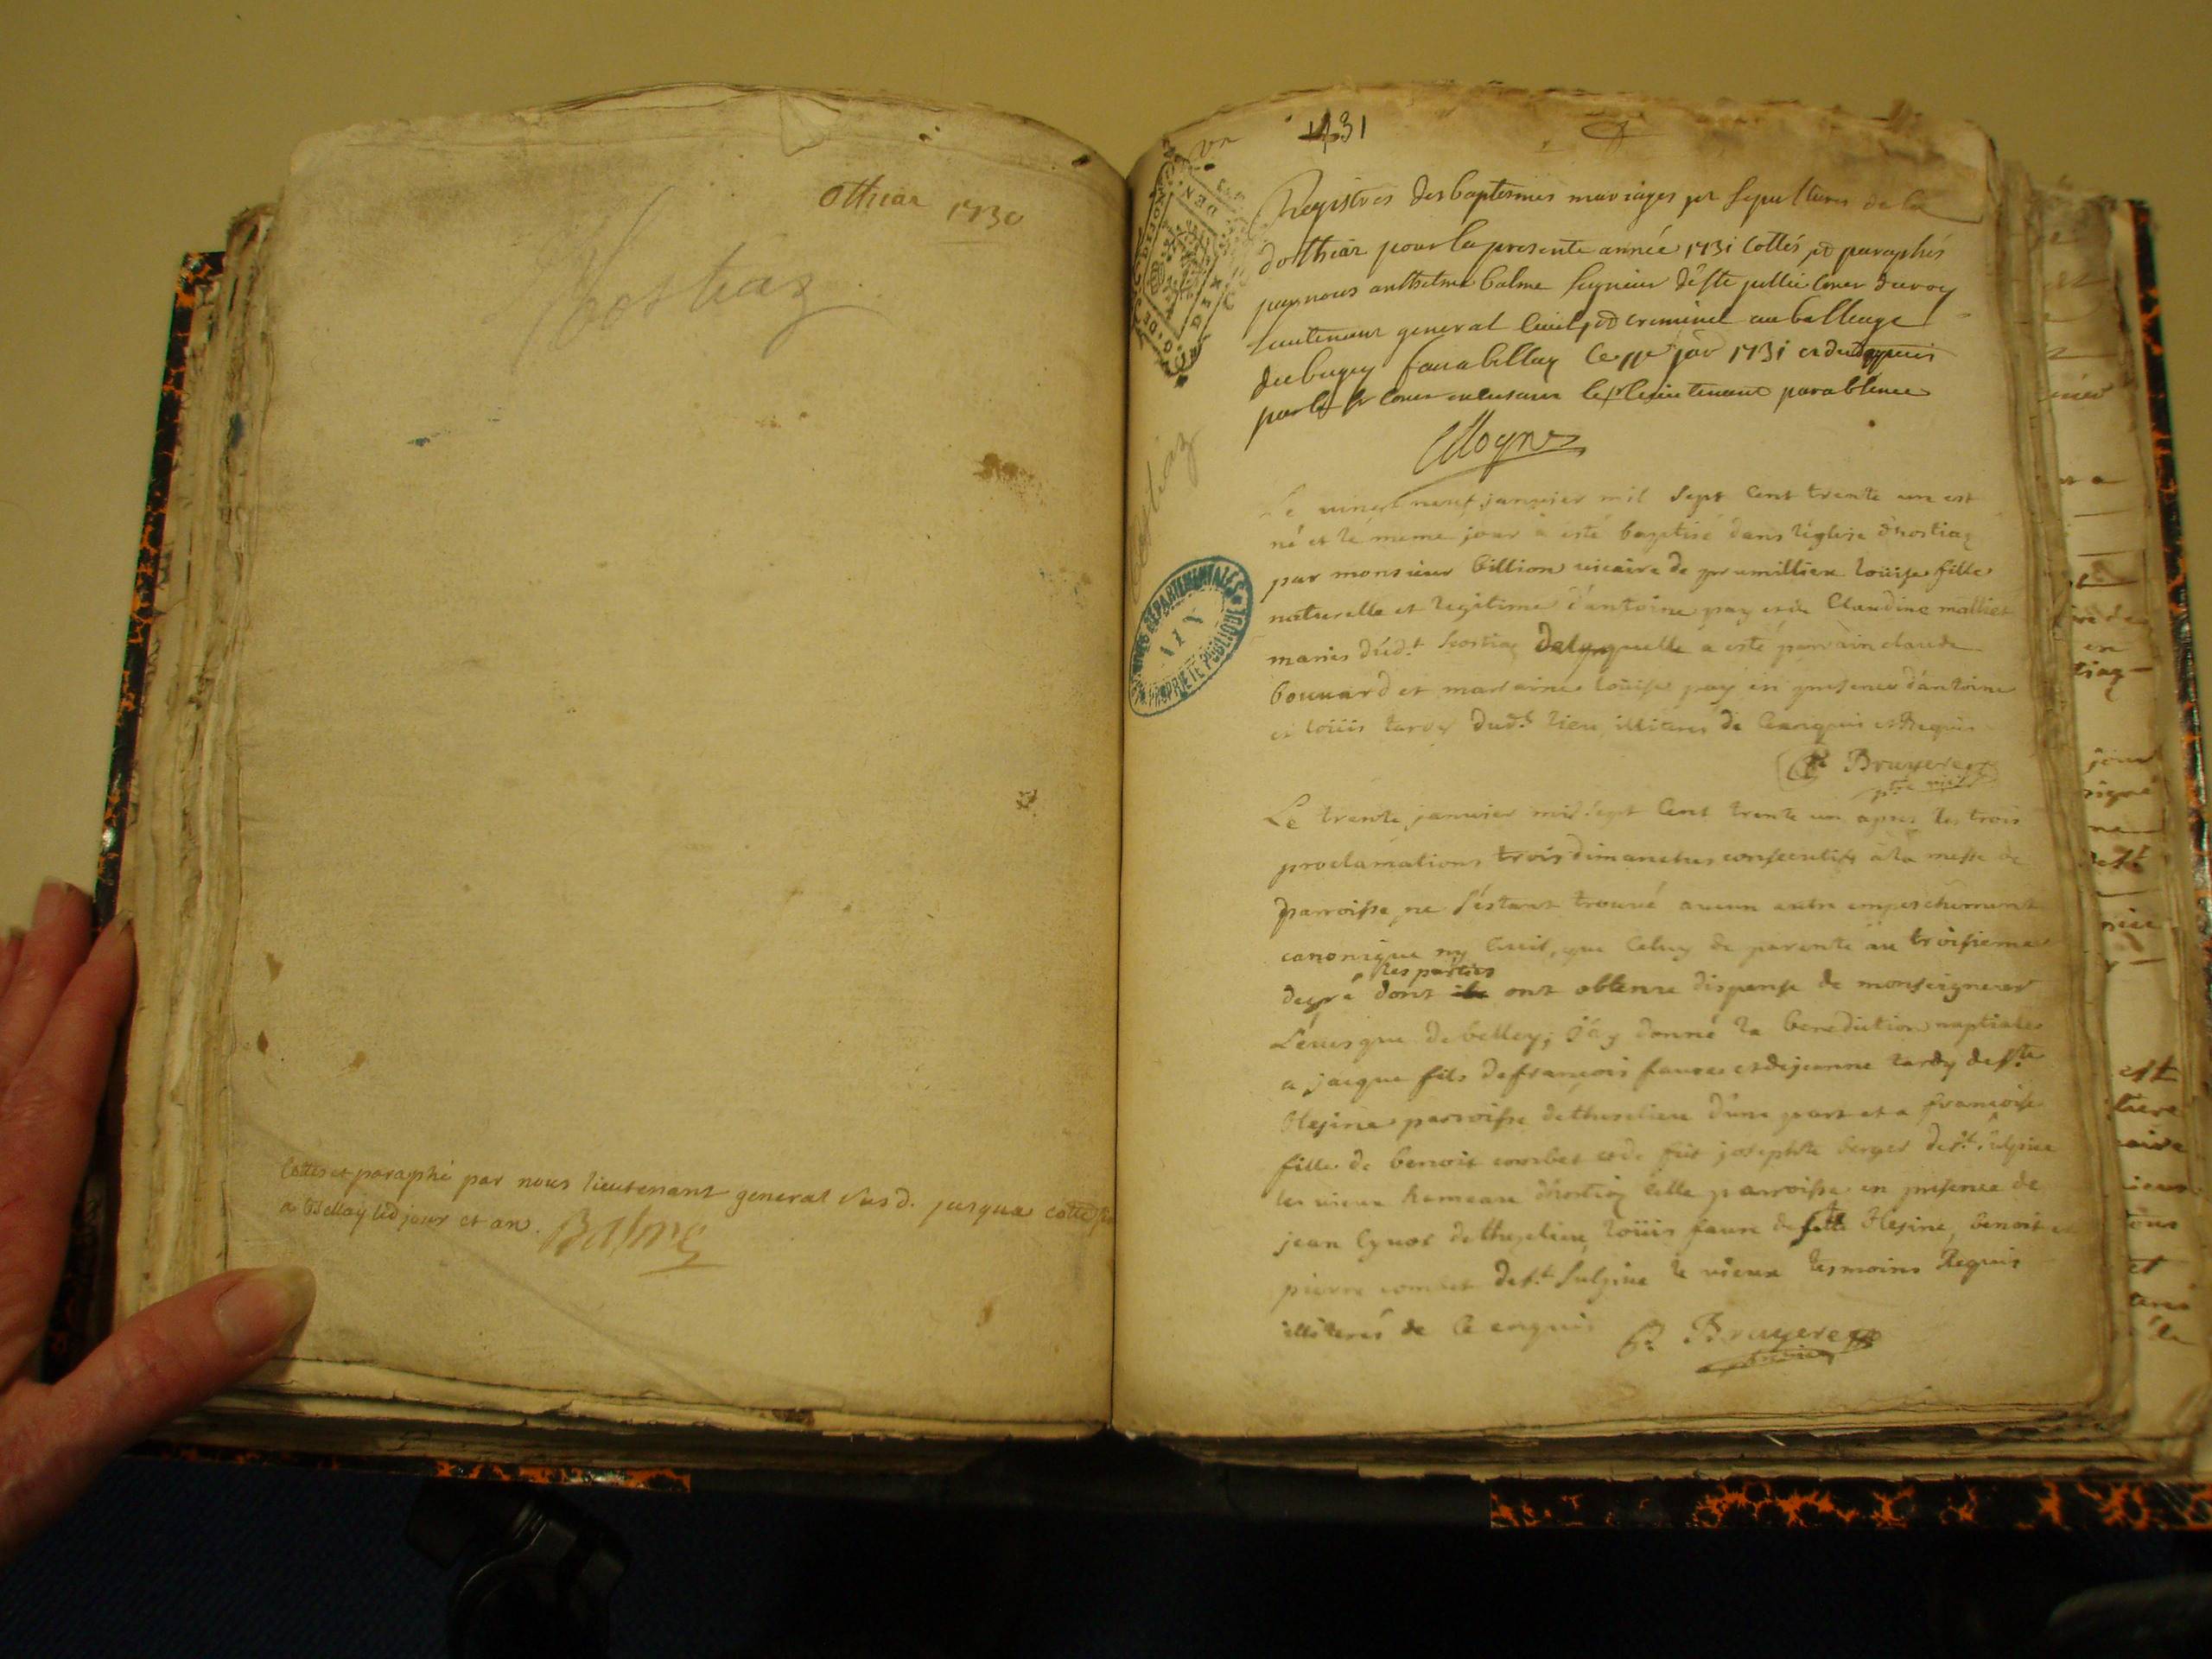 Othiar 1730
Hostiaz
Cottés et paraphé par nous lieutenant general susd. jusqua cotte
a Bellay led jour et an. Balme
un
1731
Registres des baptesmes mariages et sepultures de la
dotthiar pour la presente année 1731 Cottés et paraphés
par nous anthelme balme seigneur de ste jullie Coner du roy
Lieutenant general Civil et criminel au balliage
du bugey fait a bellay ce 11e jar 1731 et
par le sr Coner le sr lieutenant par absence
Le vingt neuf janvier mil sept cent trente un est
né et le meme jour a esté baptisé dans l'église d'hostiaz
par monsieur billion vicaire de prumillieu loüise fille
naturelle et legitime d'antoine pay et de Claudine malliet
mariés dud.t hostiaz de laquelle a esté parrain claude
bouuard et marraine loüise pay en presence d'antoine
et loüis tardy dud.t lieu illiterés de ce enquis et Requis
P. Bruyere
Le trente janvier mil sept cent trente un apres les trois
proclamations trois dimanches consecutifs à la messe de
parroisse ne s'estant trouvé aucun autre empeschement
canonique ny Civil, que Celuy de parenté au troisieme
les parties
degré dont ont obtenu dispense de monseigneur
L'éuesque de belley; j'ay donné la benediction nuptiale
a jacque fils de françois faure et de jeanne tardy de ste
blesine parroisse de thuzelieu d'une part et a françoise
fille de benoit combet et de füe josephte berger de s.t sulpice
le vieux hameau d'hostiaz cette parroisse en presence de
jean de thuzelieu, loüis faure de ste blesine, benoit et
pierre combet de s.t Sulpice le vieux tesmoins Requis
illiterés de ce enquis P. Bruyere
ARCHIVES DÉPARTEMENTALES
AIN
PROPRIÉTÉ PUBLIQUE